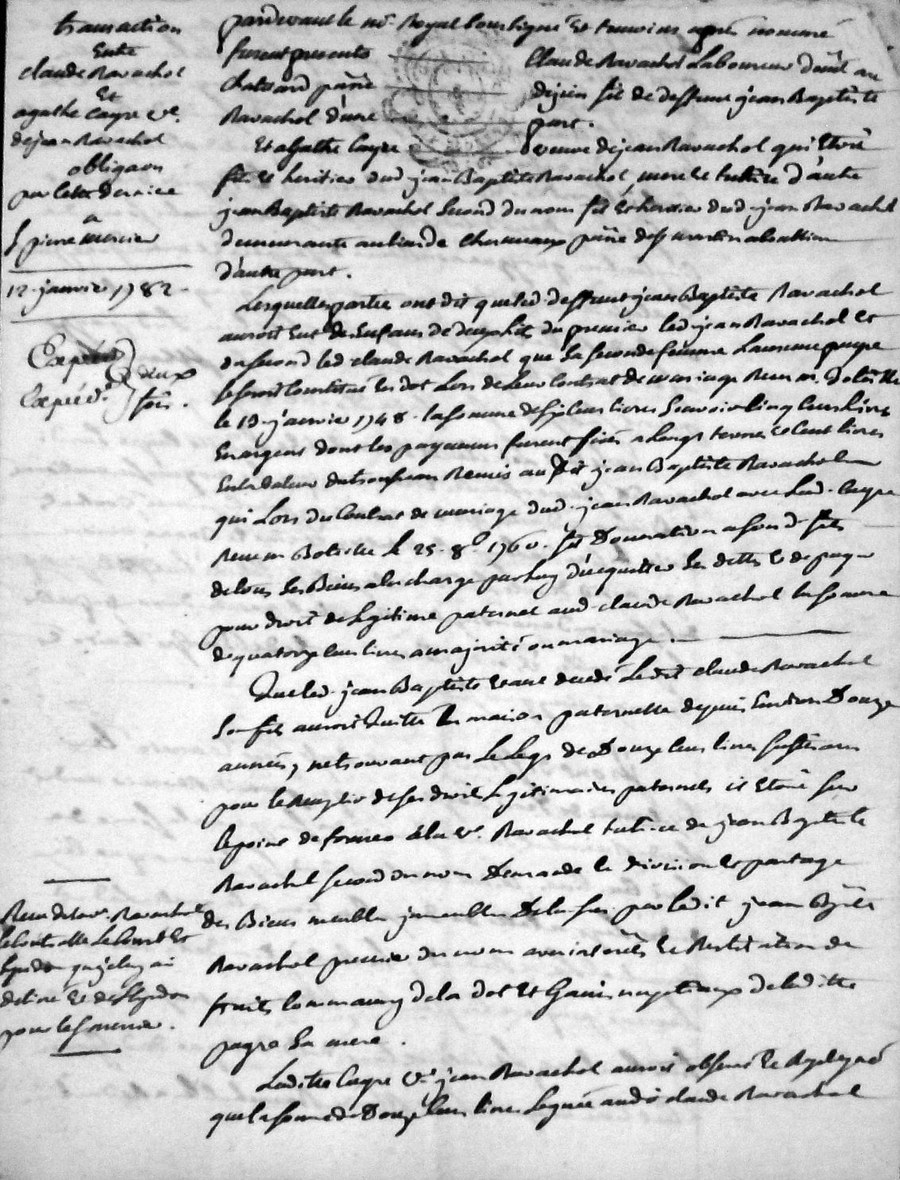 transaction
Entre
claude Ravachol
Et
agathe Cayre v.e
de jean Ravachol
obligaõn
par cette derniere
a
S pierre mercier
12 janvier 1782
Expedié
Expédié deux
fois.
pardevant le n.re Royal soussigné Et temoins apres nommé
furent presents Claude Ravachol Laboureur
parsse fils de deffunt jean Baptiste
Ravachol d'une part.
Et agathe Cayre veuve de jean Ravachol qui Etoit
fils et heritier dud. jean Baptiste Ravachol, mere et tutrice d'autre
jean Baptiste Ravachol second du nom fils et heritier dud. jean Ravachol
demeurante au lieu de parsse de
d'autre part.
Lesquelles parties ont dit que led. deffunt jean Baptiste Ravachol
auroit Eut des Enfans de deux lits, du premier led. jean Ravachol Et
du second led. claude Ravachol que sa seconde femme Laurence
se seroit Constitué En dot Lors de Leur Contrat de mariage Recu m.
le 19 janvier 1748. la somme de six cens livres scavoir Cinq cens Livres
En argent dont les payemens furent fixés a Longs termes et Cent livres
En la valeur du trousseau Remis au dit jean Baptiste Ravachol
qui Lors du Contrat de mariage dud. jean Ravachol avec Lad. Cayre
Recu m. le 25 8.bre 1760. fit Donnation a son d. fils
de tous ses Biens a la charge par Luy d'acquitter ses dettes & de payer
pour droit de legitime paternel aud. claude Ravachol la somme
de quatorze cens livres a majorité ou mariage.
Que led. jean Baptiste Etant decedé Ledit claude Ravachol
son fils auroit Quitté La maison paternelle depuis Environ Douze
années, ne trouvant pas Le Legs de Douze cens livres suffisant
pour le Remplir de ses droits Legitimaires paternels il Etoit sur
le point de former a la v.e Ravachol tutrice de jean Baptiste
Ravachol second du nom Demande En division Et partage
des Biens meubles immeubles Delaissés par ledit jean Bptiste
Ravachol premier du nom avec interets Et Restitution de
fruits Comme aussy de la dot Et Gains nuptiaux de laditte
sa mere.
Laditte Cayre v.e jean Ravachol auroit observé Et Repliqué
que la somme de Douze cens livres Leguée audit claude Ravachol
Recu de la v.e Ravachol
le controlle le
pour le